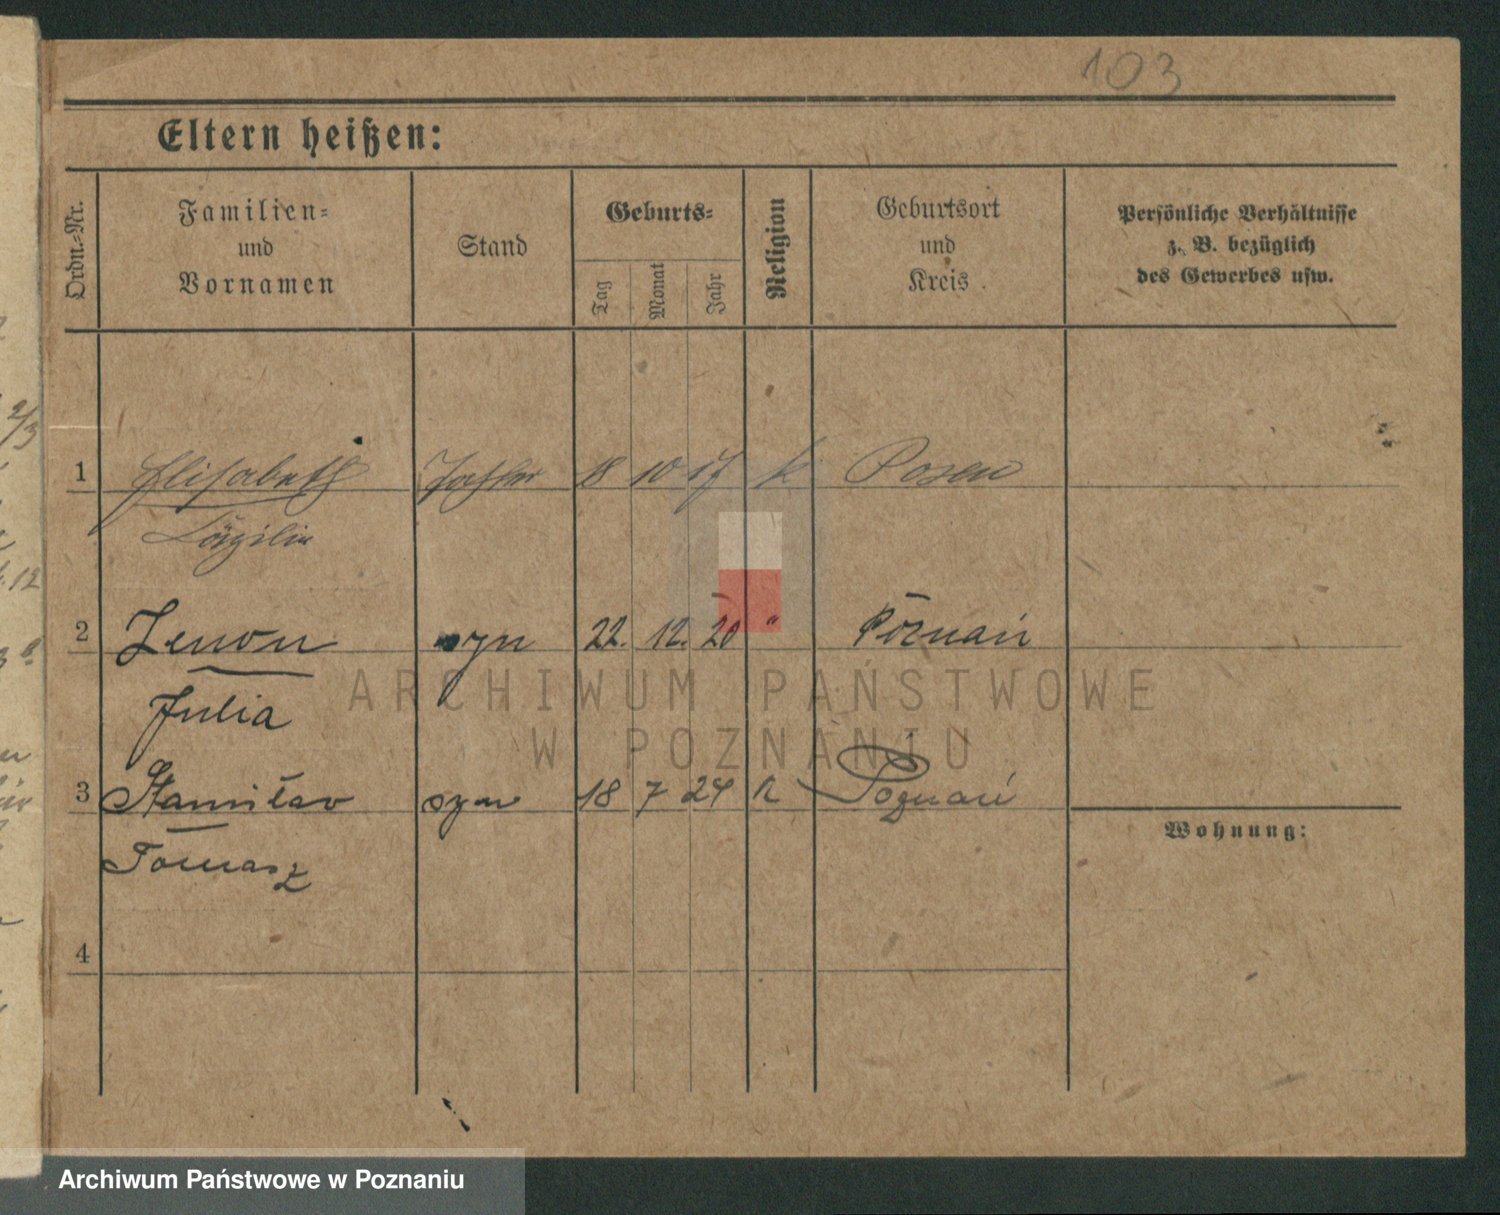 103
Eltern heißen:
Ordn.=Nr.
Familien=
und
Vornamen
Stand
Geburts=
Tag
Monat
Jahr
Religion
Geburtsort
und
Kreis
Persönliche Verhältnisse
z. B. bezüglich
des Gewerbes usw.
1 Elisabeth Tochter 18 10 17 k Posen
2 Zenon syn 22. 12. 20 " Poznań
Julia
3 Stanisław syn 18 7 24 k Poznań
Tomasz
Wohnung:
4
ARCHIWUM PAŃSTWOWE
W POZNANIU
Archiwum Państwowe w Poznaniu